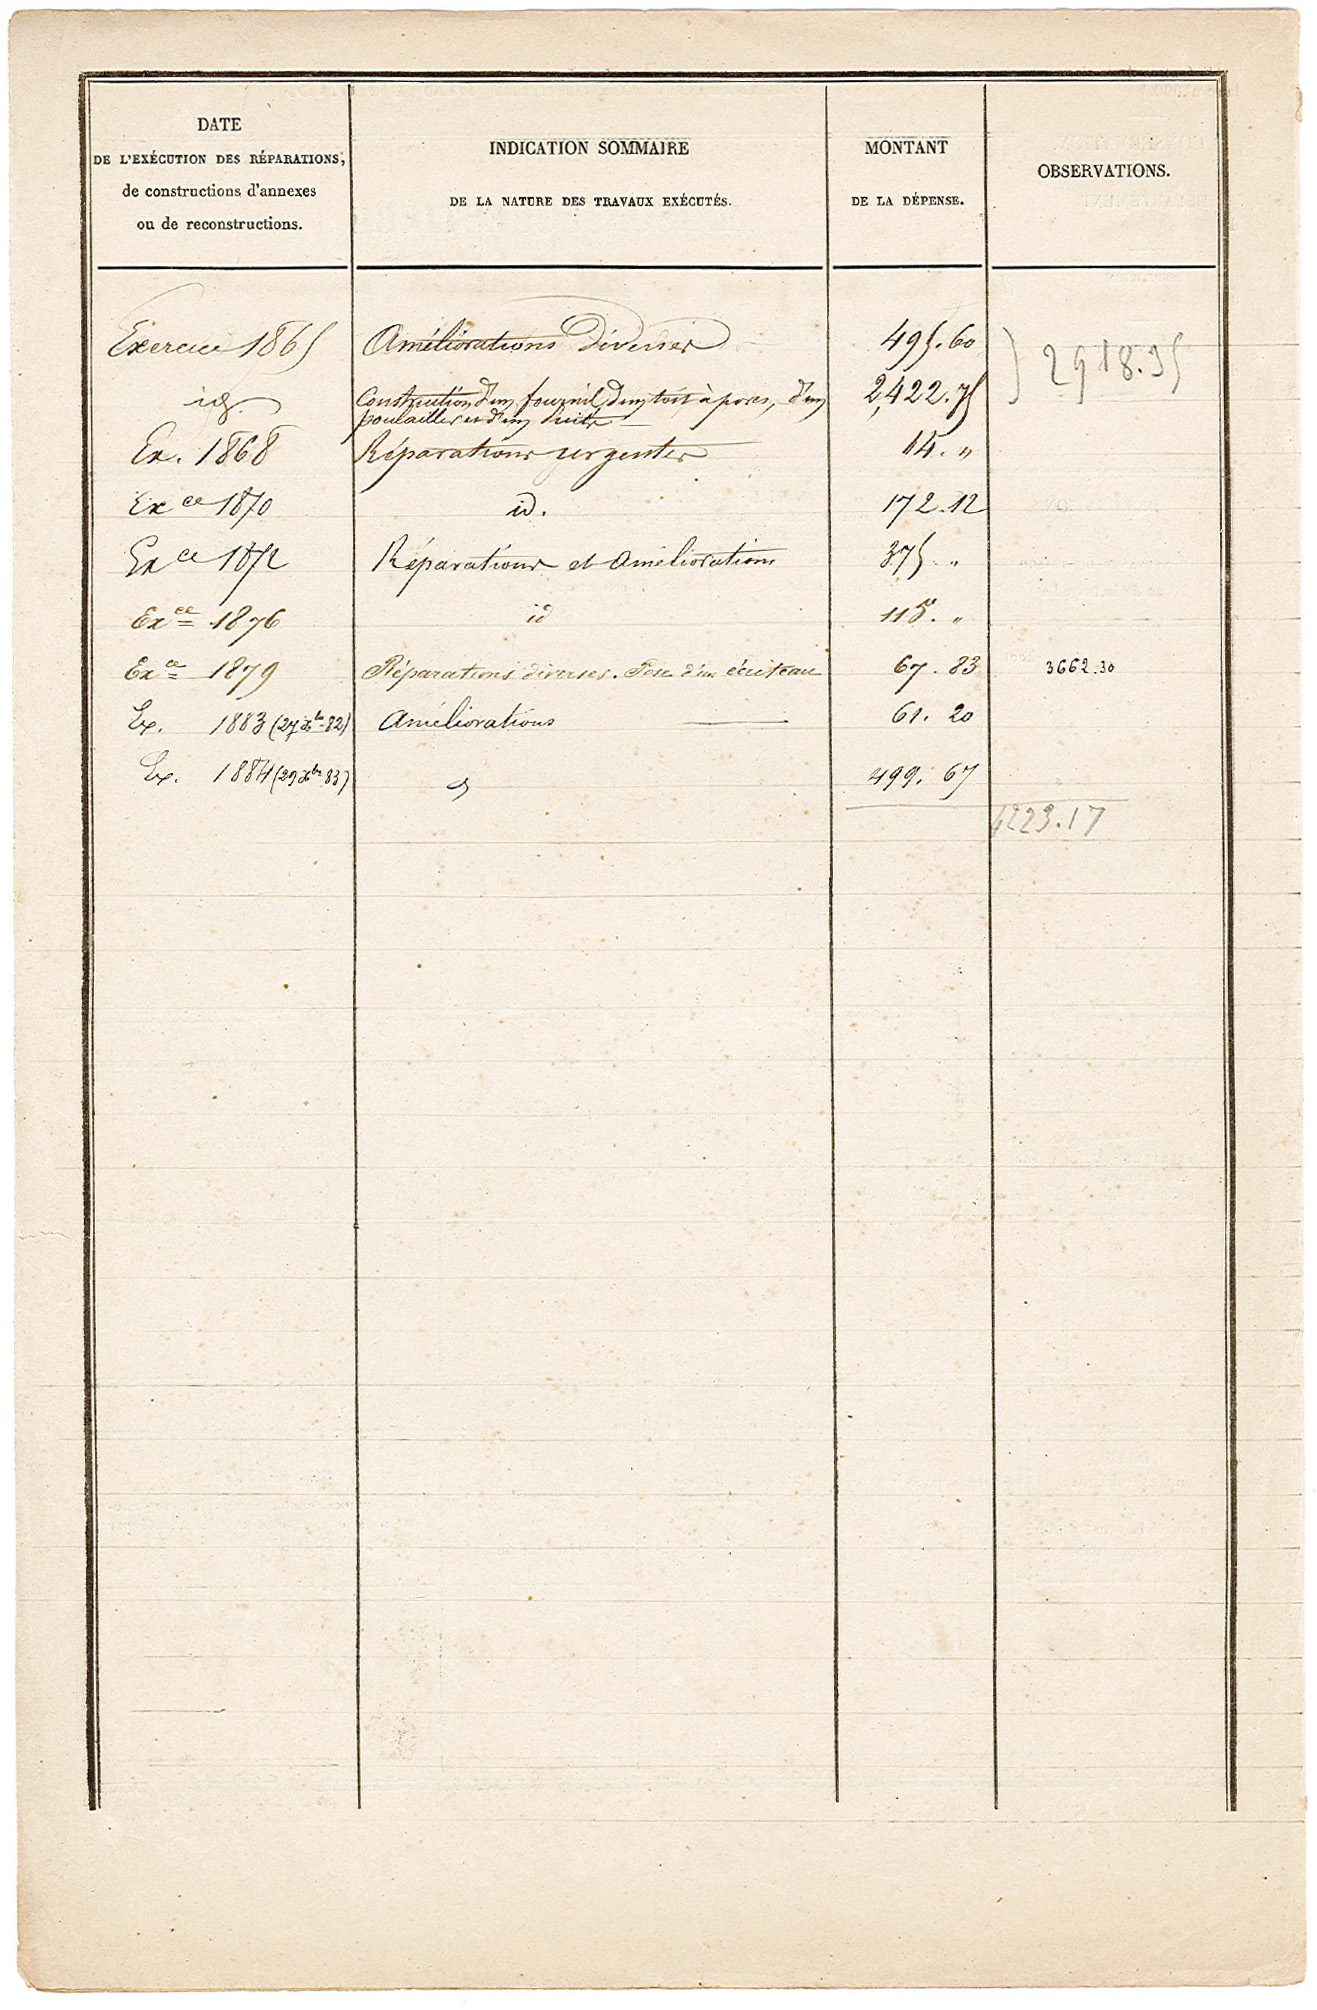 DATE
DE L'EXÉCUTION DES RÉPARATIONS,
de constructions d'annexes
ou de reconstructions.
INDICATION SOMMAIRE
DE LA NATURE DES TRAVAUX EXÉCUTÉS.
MONTANT
DE LA DÉPENSE.
OBSERVATIONS.
Exercice 1865 Améliorations diverses 495.60 2918.35
id. Construction d'un fournil, d'un toit à porcs, d'un 2,422.75
poulailler et d'un
Ex. 1868 Réparations urgentes 14. "
Exce 1870 id. 172.12
Exce 1872 Réparations et améliorations 375. "
Exce 1876 id 115. "
Exce 1879 Réparations diverses. Pose d'un écriteau 67.83 3662.30
Ex. 1883 (27 xbre 82) Améliorations 61.20
Ex. 1884 (29 xbre 83) d 499.67
4223.17